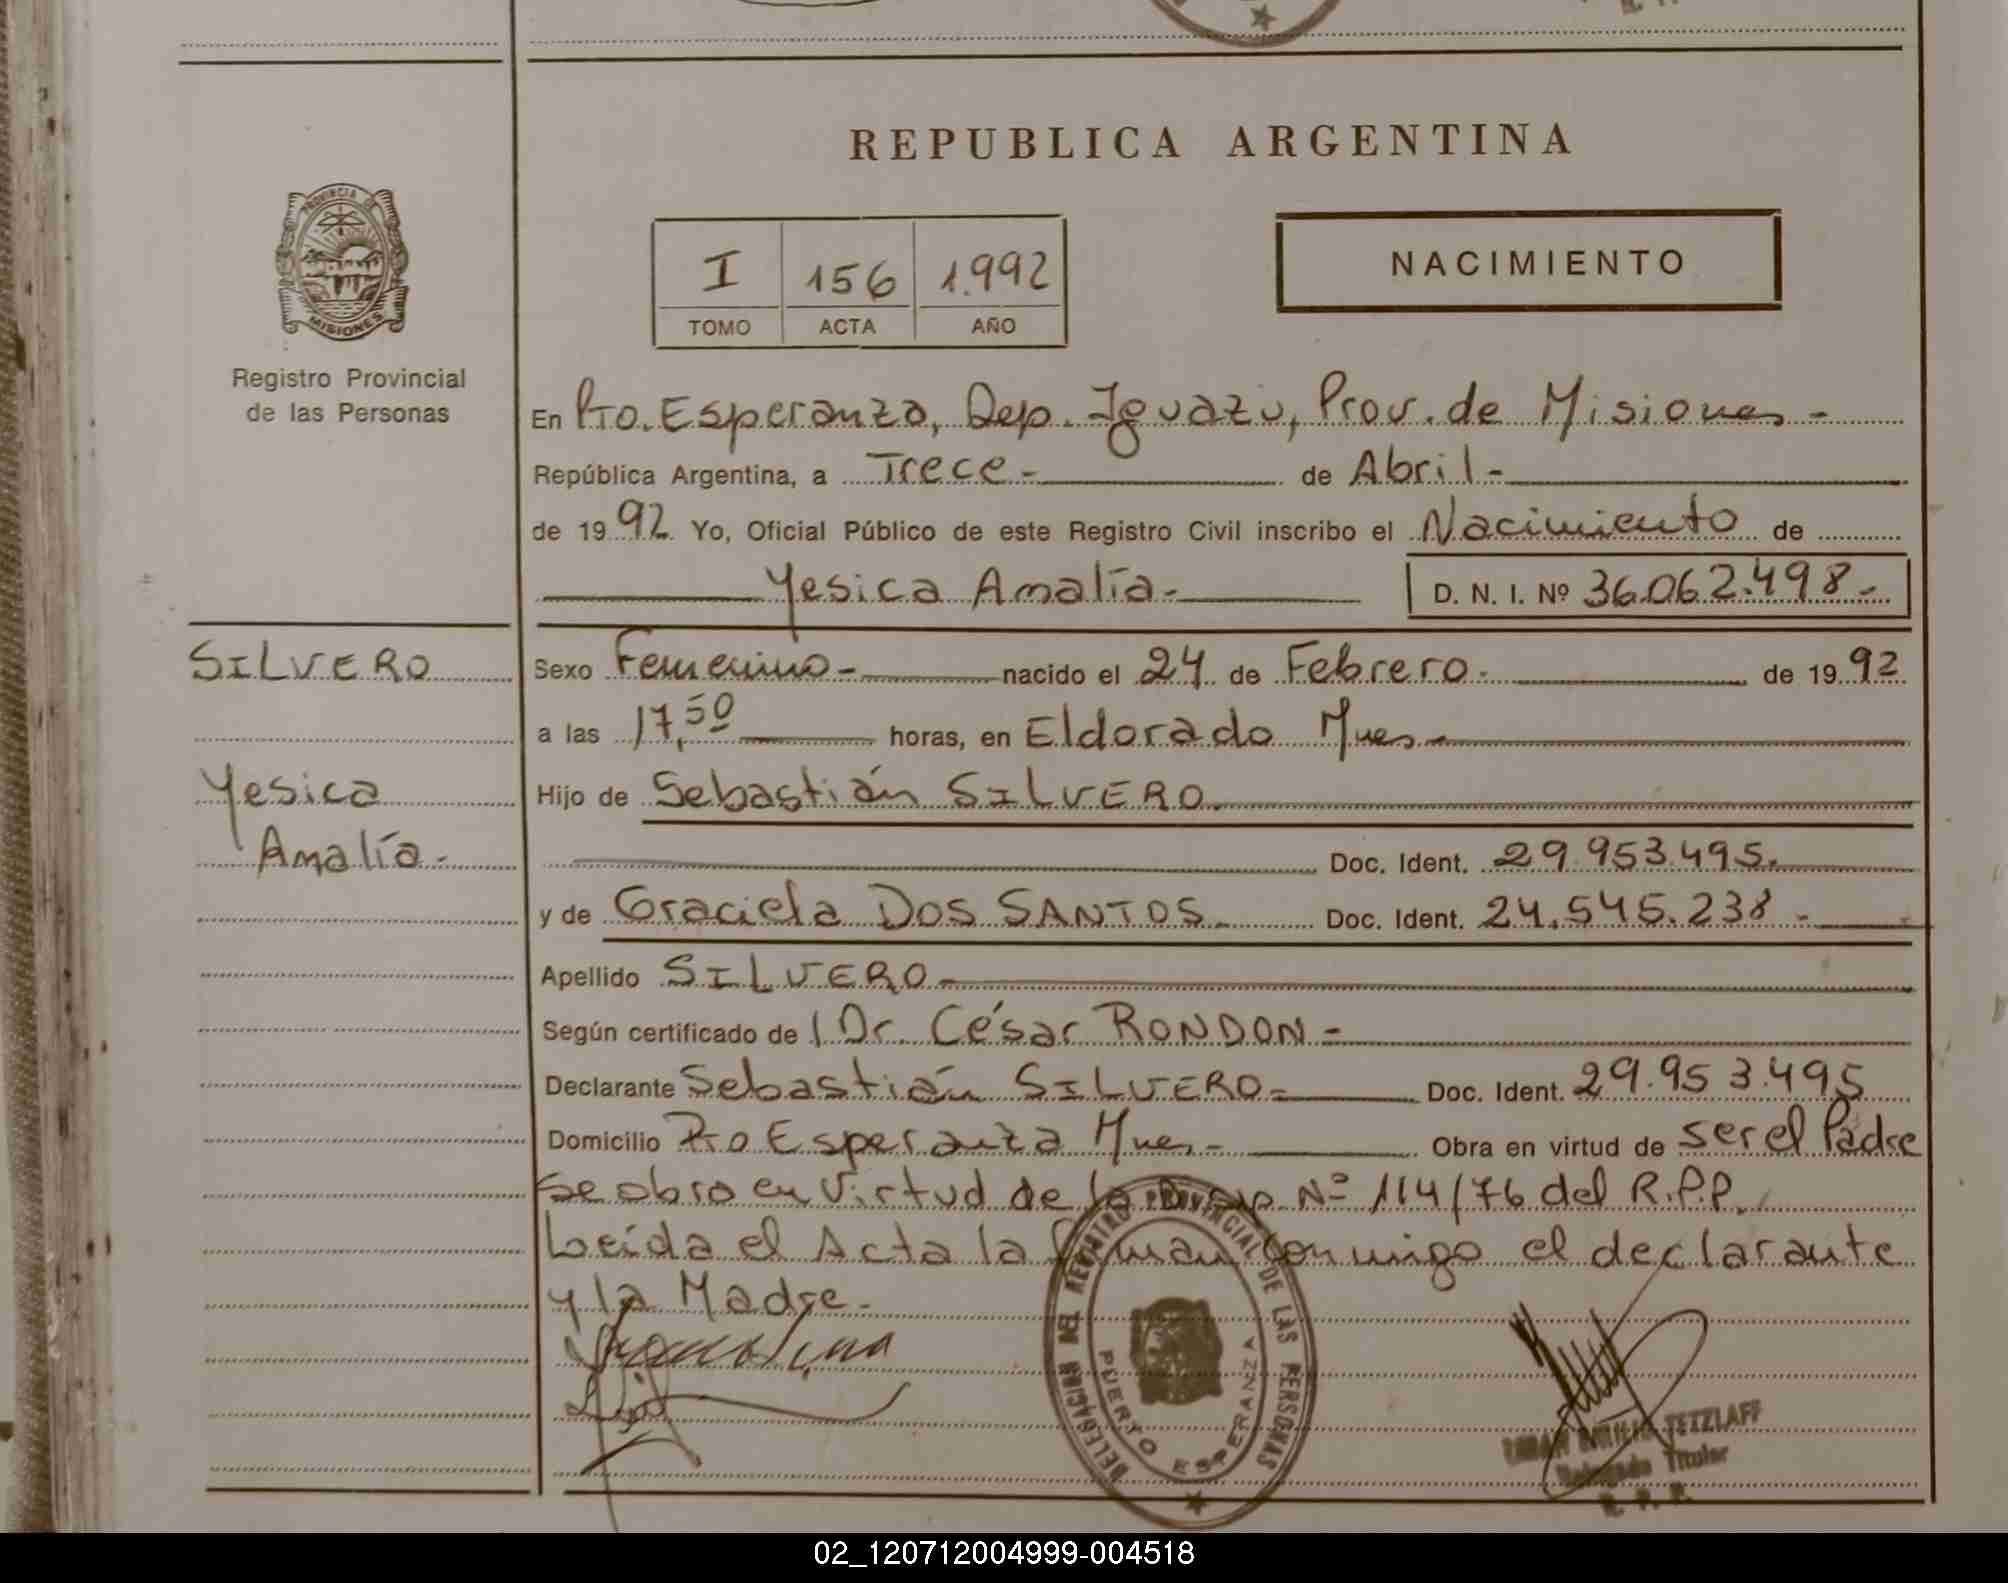 REPUBLICA ARGENTINA
PROVINCIA DE
MISIONES
Registro Provincial
de las Personas
I 156 1.992
TOMO ACTA AÑO
NACIMIENTO
En Pto. Esperanza, Dep. Iguazu, Prov. de Misiones -
República Argentina, a Trece - de Abril -
de 1992 Yo, Oficial Público de este Registro Civil inscribo el Nacimiento de
Yesica Amalía - D. N. I. Nº 36.062.498 -
SILVERO
Yesica
Amalía -
Sexo Femenino - nacido el 24 de Febrero - de 1992
a las 17,50 horas, en Eldorado Mnes -
Hijo de Sebastián SILVERO
Doc. Ident. 29.953.495.
y de Graciela DOS SANTOS Doc. Ident. 24.545.238 -
Apellido SILVERO -
Según certificado de l Dr. César RONDON -
Declarante Sebastián SILVERO - Doc. Ident. 29.953.495
Domicilio Pto Esperanza Mnes - Obra en virtud de ser el Padre
Se obro en Virtud de la Disp. Nº 114/76 del R.P.P.
Leída el Acta la firman conmigo el declarante
y la Madre -
DELEGACION DEL REGISTRO PROVINCIAL DE LAS PERSONAS
PUERTO ESPERANZA
TETZLAFF
Delegado Titular
R. P. P.
02_120712004999-004518